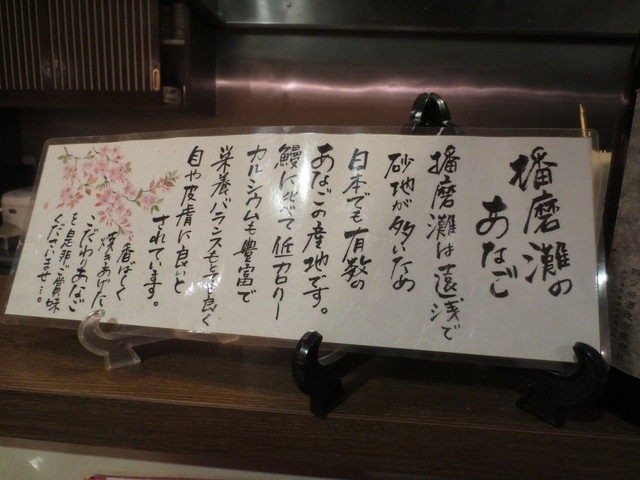 播磨灘の
あなご
播磨灘は遠浅で
砂地が多いため
日本でも有数の
あなごの産地です。
鰻に比べて低カロリー
カルシウムも豊富で
栄養バランスもとても良く
目や皮膚に良いと
されています。
香ばしく
焼きあげた
こだわりあなご
を是非ご賞味
くださいませ…。